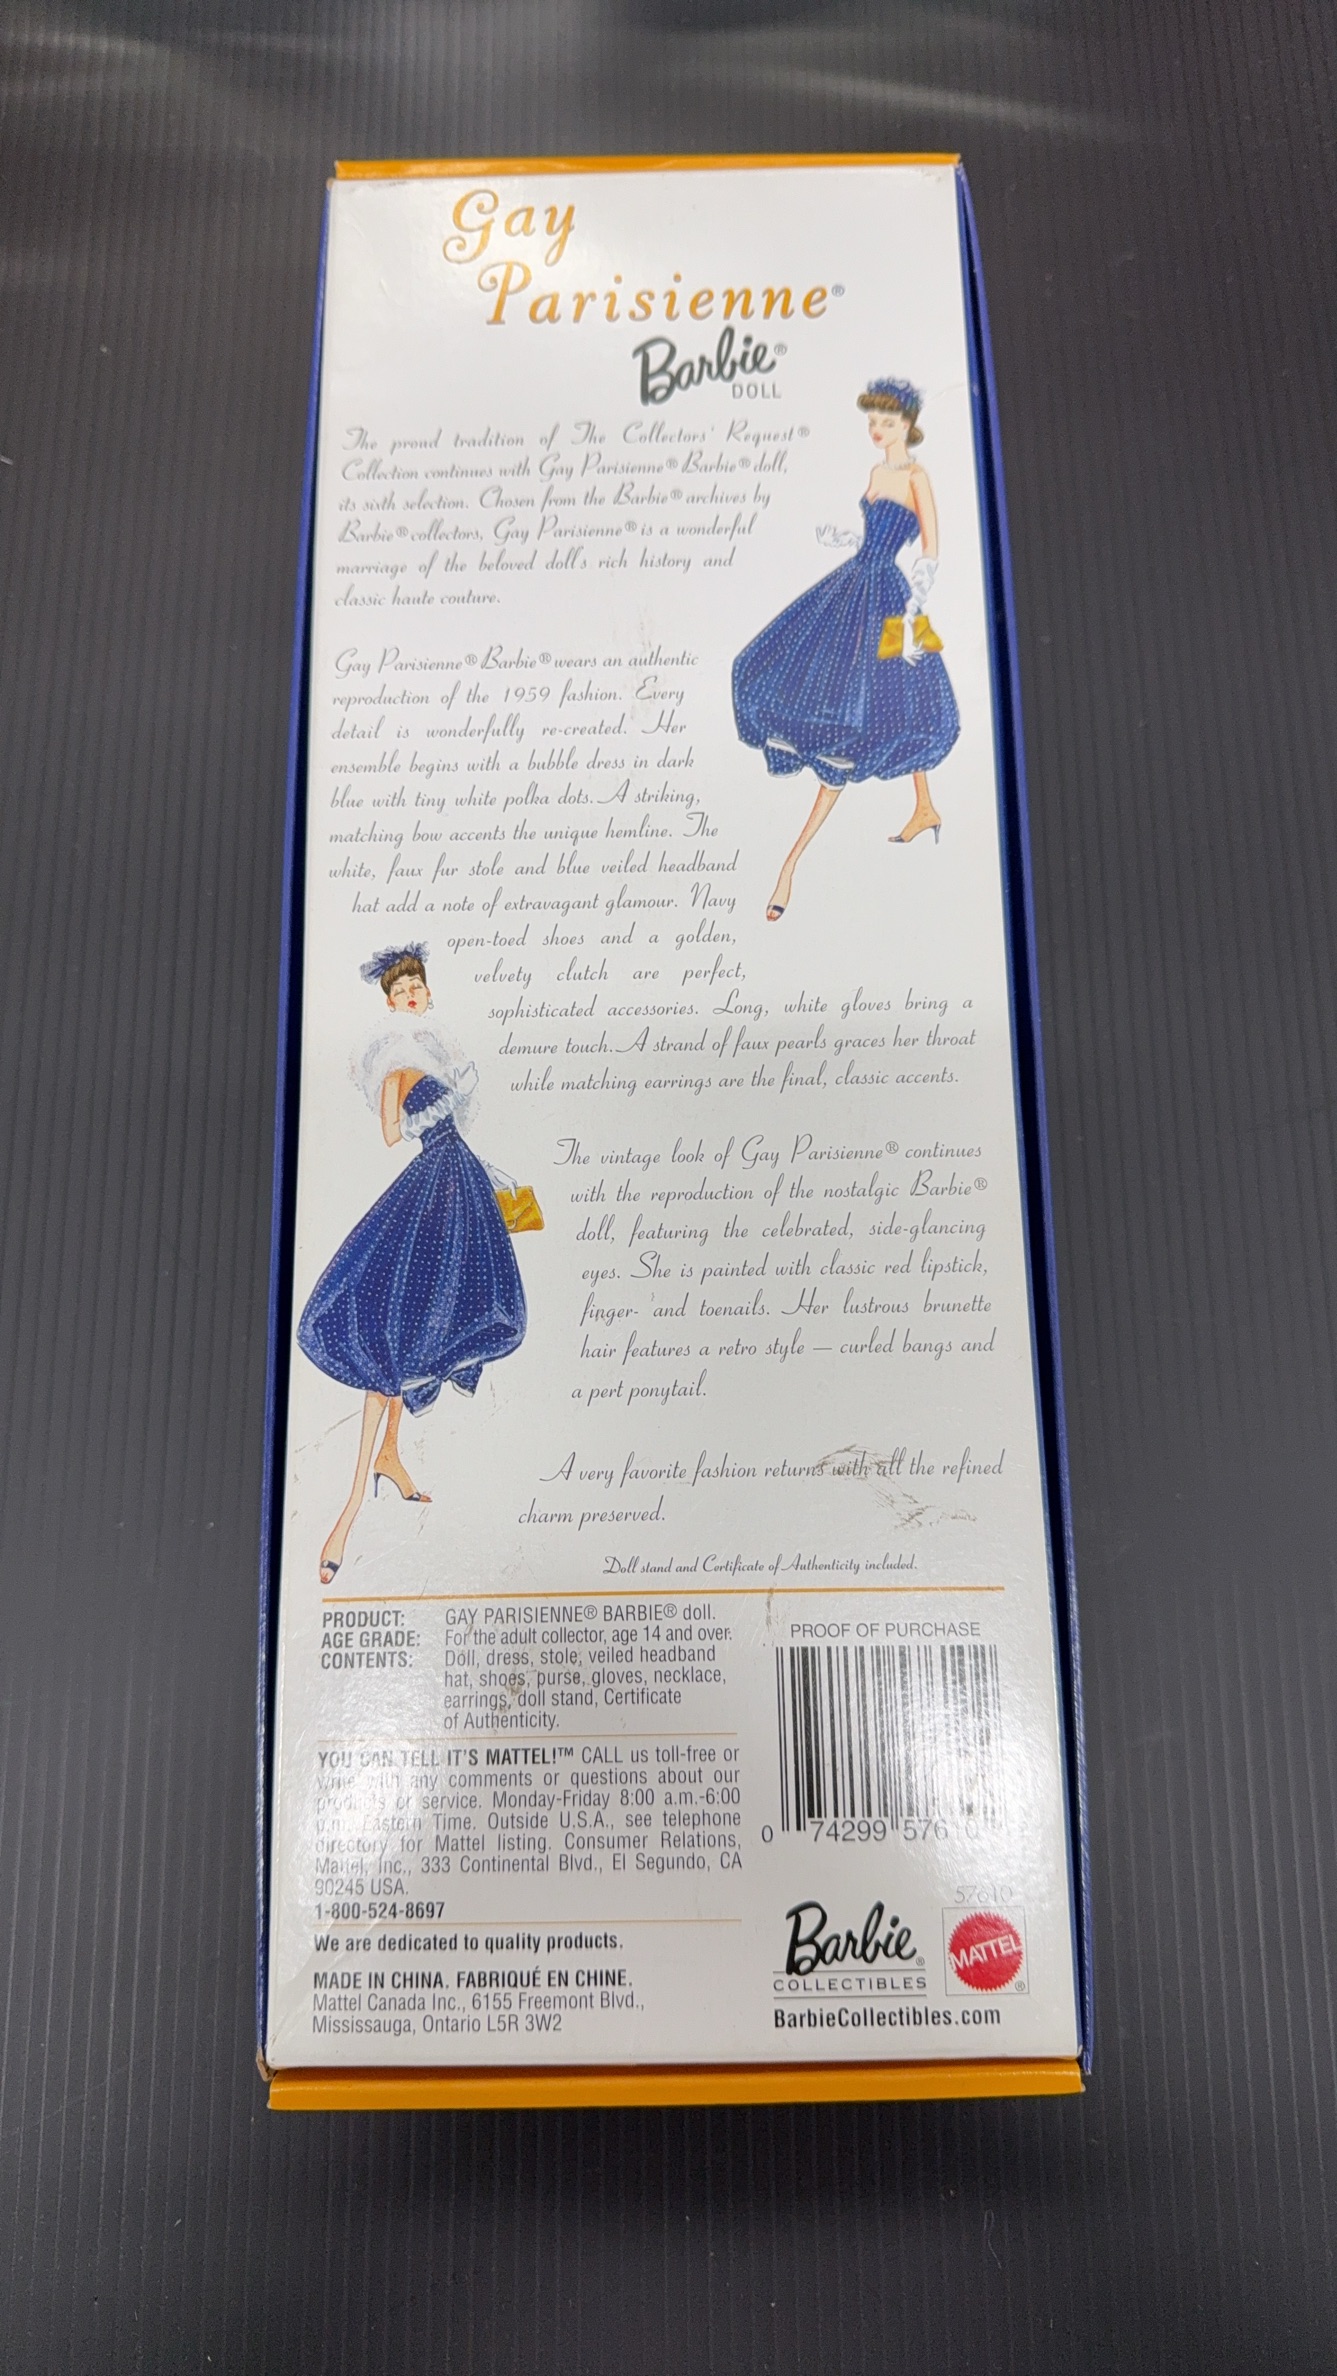 Gay
Parisienne®
Barbie®
DOLL
The proud tradition of The Collectors' Request®
Collection continues with Gay Parisienne® Barbie® doll,
its sixth selection. Chosen from the Barbie® archives by
Barbie® collectors, Gay Parisienne® is a wonderful
marriage of the beloved doll's rich history and
classic haute couture.
Gay Parisienne® Barbie® wears an authentic
reproduction of the 1959 fashion. Every
detail is wonderfully re-created. Her
ensemble begins with a bubble dress in dark
blue with tiny white polka dots. A striking,
matching bow accents the unique hemline. The
white, faux fur stole and blue veiled headband
hat add a note of extravagant glamour. Navy
open-toed shoes and a golden,
velvety clutch are perfect,
sophisticated accessories. Long, white gloves bring a
demure touch. A strand of faux pearls graces her throat
while matching earrings are the final, classic accents.
The vintage look of Gay Parisienne® continues
with the reproduction of the nostalgic Barbie®
doll, featuring the celebrated, side-glancing
eyes. She is painted with classic red lipstick,
finger- and toenails. Her lustrous brunette
hair features a retro style — curled bangs and
a pert ponytail.
A very favorite fashion returns with all the refined
charm preserved.
Doll stand and Certificate of Authenticity included.
PRODUCT: GAY PARISIENNE® BARBIE® doll.
AGE GRADE: For the adult collector, age 14 and over.
CONTENTS: Doll, dress, stole, veiled headband
hat, shoes, purse, gloves, necklace,
earrings, doll stand, Certificate
of Authenticity.
YOU CAN TELL IT'S MATTEL!™ CALL us toll-free or
write with any comments or questions about our
products or service. Monday-Friday 8:00 a.m.-6:00
p.m. Eastern Time. Outside U.S.A., see telephone
directory for Mattel listing. Consumer Relations,
Mattel, Inc., 333 Continental Blvd., El Segundo, CA
90245 USA.
1-800-524-8697
We are dedicated to quality products.
MADE IN CHINA. FABRIQUÉ EN CHINE.
Mattel Canada Inc., 6155 Freemont Blvd.,
Mississauga, Ontario L5R 3W2
PROOF OF PURCHASE
0 74299 57610
57610
Barbie®
COLLECTIBLES
MATTEL®
BarbieCollectibles.com